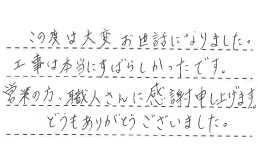 この度は大変お世話になりました。
工事は本当にすばらしかったです。
営業の方、職人さんに感謝申し上げます
どうもありがとうございました。